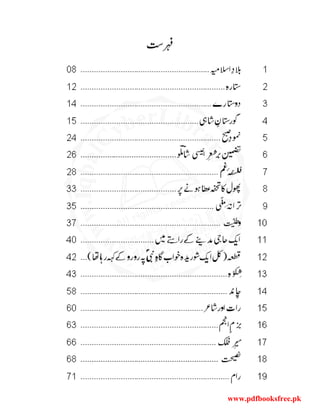 فہرست
1 بلادِ اسلامیہ 08
2 ستارہ 12
3 دو ستارے 14
4 گورستانِ شاہی 15
5 نمودِ صبح 24
6 تضمین بر شعرِ انیسی شاملو 26
7 فلسفۂ غم 28
8 پھول کا تحفہ عطا ہونے پر 33
9 ترانۂ ملّی 35
10 وطنیّت 37
11 ایک حاجی مدینے کے راستے میں 40
12 قطعہ (کل ایک شوریدہ خواب گاہِ نبیؐ پہ رو رو کے کہہ رہا تھا) 42
13 شکوہ 43
14 چاند 58
15 رات اور شاعر 60
16 بزمِ انجم 63
17 سیرِ فلک 66
18 نصیحت 68
19 رام 71
www.pdfbooksfree.pk